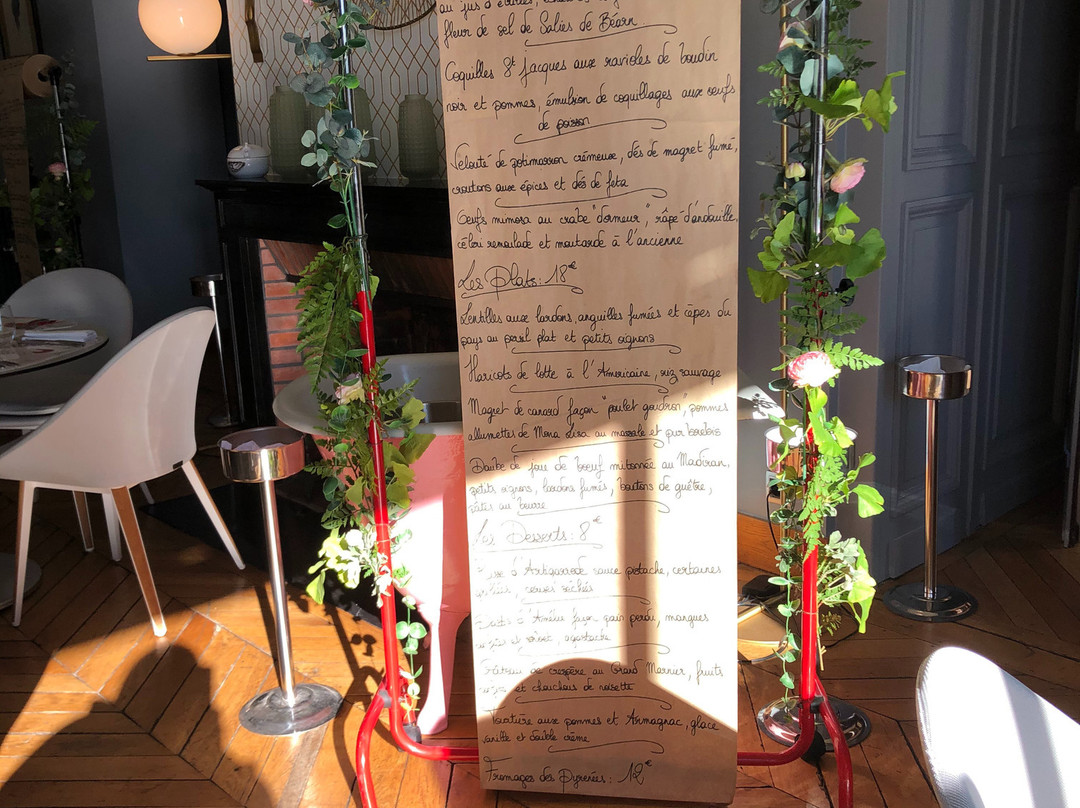 au jus d'
fleur de sel de Salies de Béarn
Coquilles St Jacques aux ravioles de boudin
noir et pommes, émulsion de coquillages aux oeufs
de poisson
Velouté de potimarron crémeuse, dés de magret fumé,
croutons aux épices et dés de feta
Oeufs mimosa au crabe "dormeur", râpé d'andouille,
céleri remoulade et moutarde à l'ancienne
Les Plats: 18€
Lentilles aux lardons, anguilles fumées et cèpes du
pays au persil plat et petits oignons
Haricots de lotte à l'Américaine, riz sauvage
Magret de canard façon "poulet goudron", pommes
allumettes de Mona Lisa au et pur brebis
Daube de joue de boeuf mitonnée au Madiran,
petits oignons, lardons fumés, boutons de guêtre,
pâtes au beurre
Les Desserts: 8€
d' sauce pistache, certaines
séchées
d'Amélie façon pain perdu, mangues
et sorbet
Gâteau de crespère au Grand Marnier, fruits
et chouchous de noisette
Tourtière aux pommes et Armagnac, glace
vanille et double crème
Fromages des Pyrénées: 12€